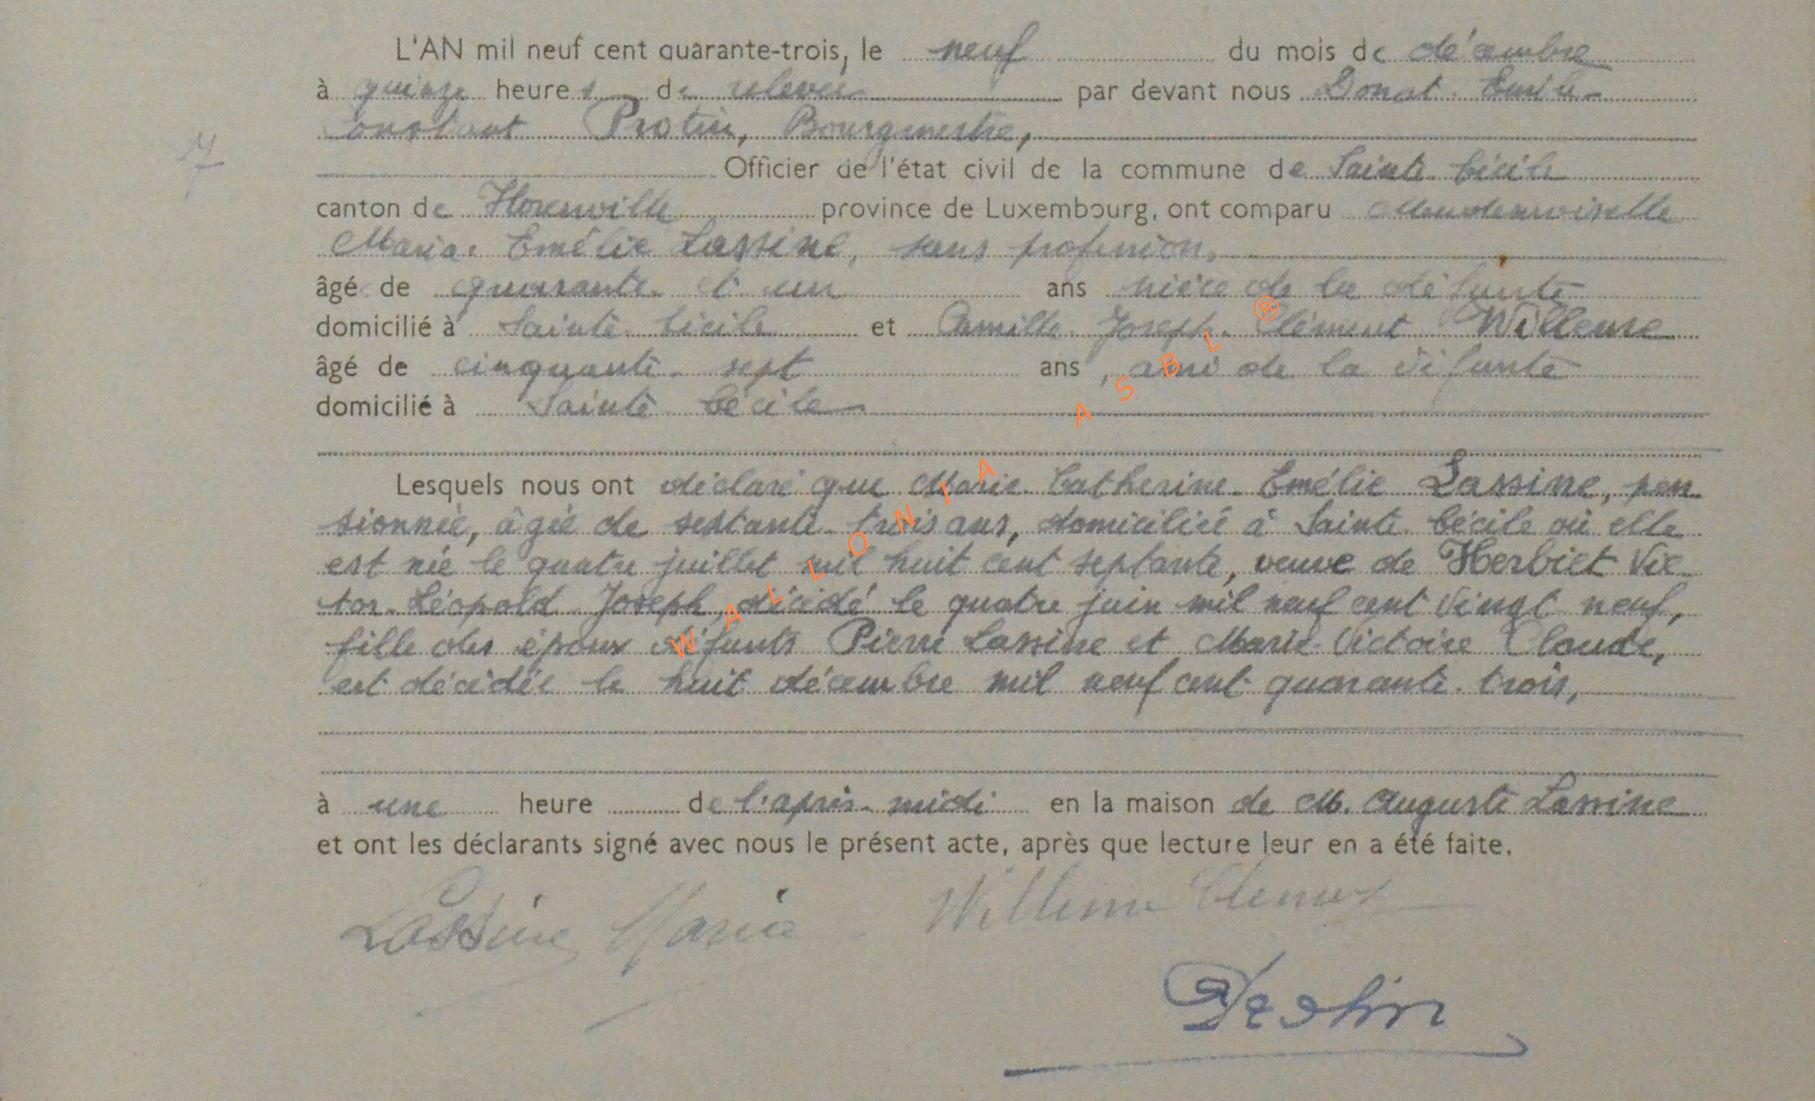 L'AN mil neuf cent quarante-trois, le neuf du mois de décembre
à quinze heures de relevée par devant nous Donat Emile
Constant Protin, Bourgmestre,
17
Officier de l'état civil de la commune de Sainte Cécile
canton de Florenville province de Luxembourg, ont comparu Mademoiselle
Maria Emélie Lassine, sans profession,
âgé de quarante et un ans nièce de la défunte
domicilié à Sainte Cécile et Camille Joseph Clément Willeme
âgé de cinquante-sept ans, ami de la défunte
domicilié à Sainte Cécile
Lesquels nous ont déclaré que Marie Catherine Emélie Lassine, pen
sionnée, âgée de septante-trois ans, domiciliée à Sainte Cécile où elle
est née le quatre juillet mil huit cent septante, veuve de Herbiet Vic
tor Léopold Joseph, décédé le quatre juin mil neuf cent vingt neuf,
fille des époux défunts Pierre Lassine et Marie-Victoire Claude,
est décédée le huit décembre mil neuf cent quarante-trois,
à une heure de l'après-midi en la maison de M. Auguste Lassine
et ont les déclarants signé avec nous le présent acte, après que lecture leur en a été faite.
Lassine Maria Willeme Clement
WALLONIA ASBL ®